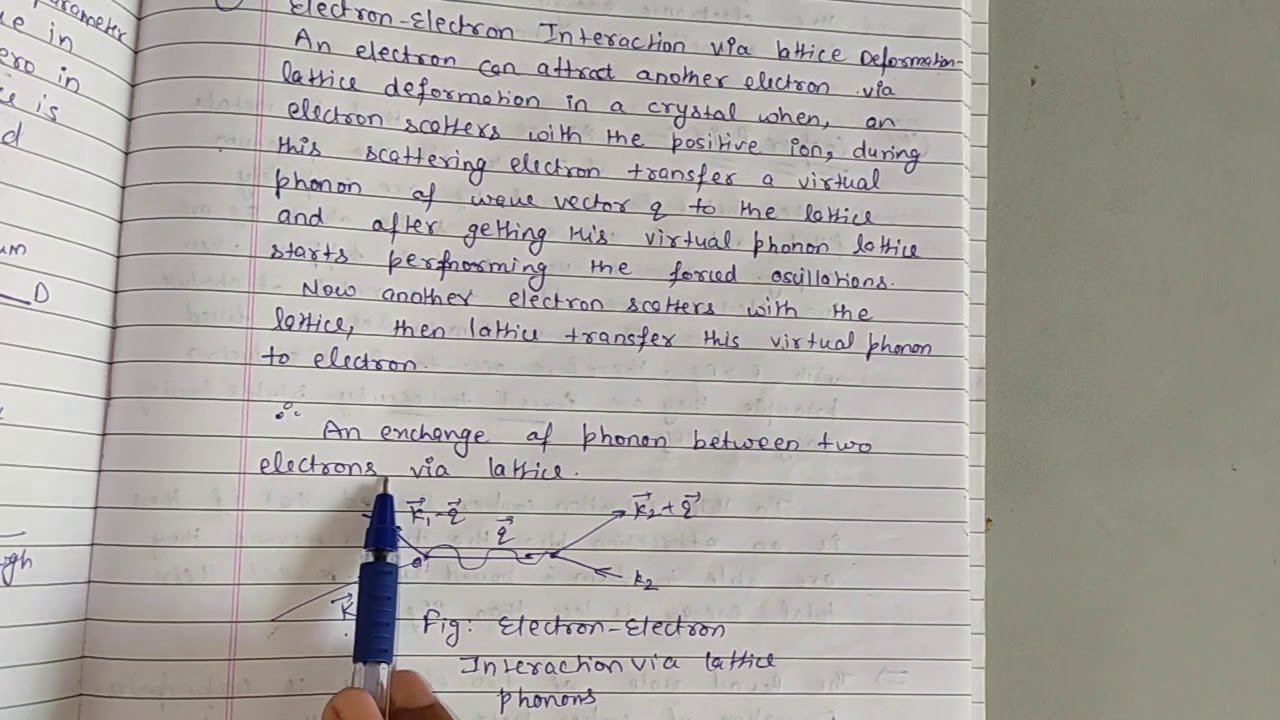 arameter
ue in
ero in
ce is
d
um
D
ugh
Electron-Electron Interaction via lattice Deformation-
An electron can attract another electron via
lattice deformation in a crystal when, an
electron scatters with the positive ion, during
this scattering electron transfer a virtual
phonon of wave vector q to the lattice
and after getting this virtual phonon lattice
starts perfnorming the forced oscillations.
Now another electron scatters with the
lattice, then lattice transfer this virtual phonon
to electron.
∴ An exchange of phonon between two
electrons via lattice.
k⃗₁-q⃗
q⃗
k⃗₂+q⃗
k₂
k⃗
Fig: Electron-Electron
Interaction via lattice
phonons